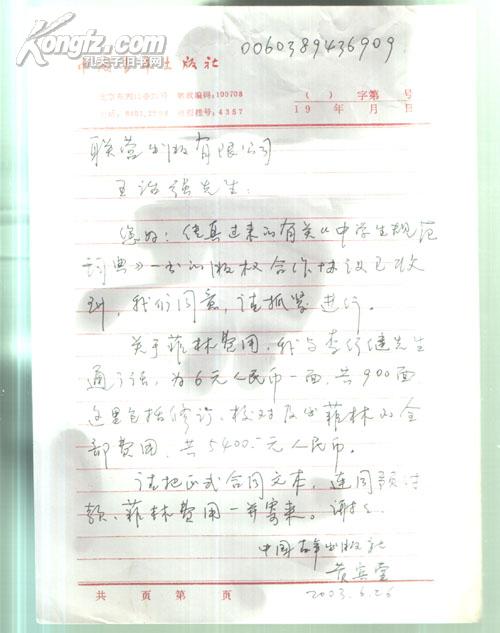 Kongfz.com
孔夫子旧书网
0060389436909
出版社
邮政编码：100708
电报挂号：4357
（ ）字第 号
19 年 月 日
联营出版有限公司
王 强先生：
您好！传真过来的有关《中学生规范
词典》一书的版权合作协议已收
到，我们同意，请抓紧进行。
关于菲林费用，我与李行健先生
通了话，为6元人民币一面，共900面
这里包括修订、校对及出菲林的全
部费用，共5400.元人民币。
请把正式合同文本，连同预付
款、菲林费用一并寄来。谢谢
中国青年出版社
黄宾堂
2003.6.26
共 页 第 页